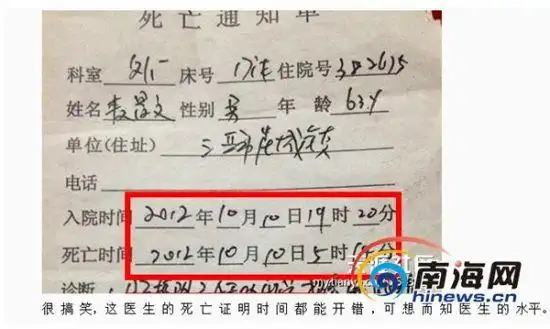 死亡通知单
科室 外一 床号 17床 住院号 382675
姓名 文 性别 男 年龄 63岁
单位(住址) 三亚市崖城镇
电话
入院时间 2012年10月10日19时20分
死亡时间 2012年10月10日5时15分
诊断:
南海网
hinews.cn
很搞笑,这医生的死亡证明时间都能开错,可想而知医生的水平。